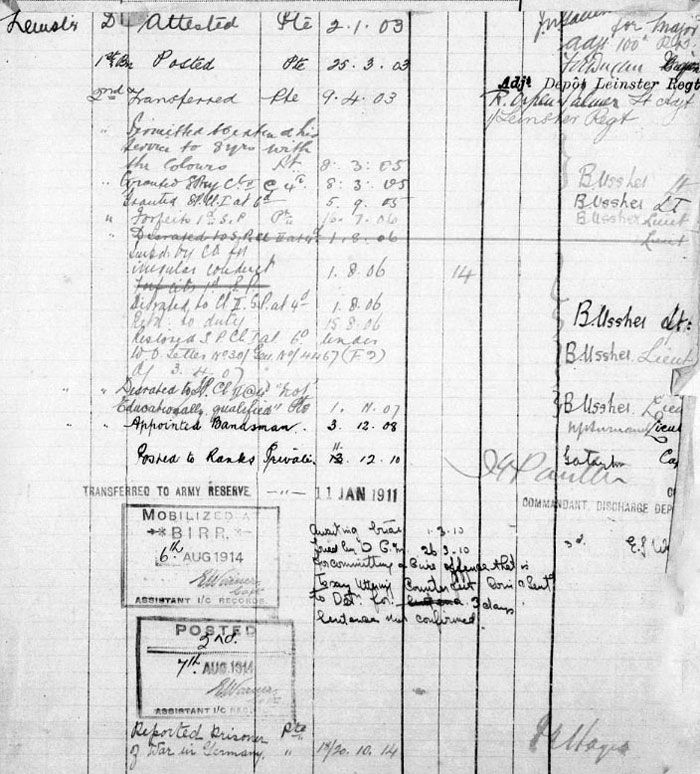 Leinstr D Attested Pte 2.1.03
for Major
Adjt 100th
1st Bn Posted Pte 25.3.03
Adjt Depôt Leinster Regt
2nd " Transferred Pte 9.4.03
Lt Adjt
Leinster Regt
" Permitted to extend his
Service to 8 yrs with
the Colours Pt 8.3.05
" Granted S. Pay Cl II @ 4d 8.3.05
B Ussher Lt
Granted S.P. Cl I at 6d 5.9.05
B Ussher Lt
" Forfeits 1d S.P. Pte 16.7.06
B Ussher Lieut
Degraded to S.P. Cl II at 4d 1.8.06
Lieut
by CO for
irregular conduct 1.8.06 14
Forfeits 1d S.P.
Degraded to Cl II S.P. at 4d 1.8.06
B. Ussher Lt:
Retd to duty 15.8.06
Restored S.P. Cl I at 6d under
W.O Letter No 30/Gen No/4467 (F2)
B Ussher Lieut
of 3.4.07
" " Degraded to S.P. Cl II @ 4d "not
Educationally qualified" Pte 1.11.07
B Ussher Lieut
" " Appointed Bandsman. 3.12.08
Lieut
Posted to Ranks Private 11. 13.12.10
TRANSFERRED TO ARMY RESERVE —"— 11 JAN 1911
COMMANDANT, DISCHARGE DEP
MOBILIZED AT
BIRR.
6th AUG 1914
E Warner
Capt
ASSISTANT I/C RECORDS
Awaiting trial 1.3.10
Tried by D.C.M 26.3.10
for committing a Civil offence that is
To say Uttering Counterfeit Coin & Sentd
to Detn for 3 days
Sentence not confirmed.
POSTED
2nd.
7th AUG 1914
E Warner
ASSISTANT I/C REC
Reported Prisoner Pte
of War in Germany. " 19/20.10.14